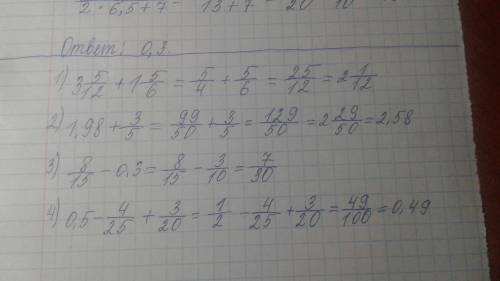 2 · 6,5 + 7 = 13 + 7 = 20 10
Ответ: 0,3.
1) 3 5/12 + 1 5/6 = 5/4 + 5/6 = 25/12 = 2 1/12
2) 1,98 + 3/5 = 99/50 + 3/5 = 129/50 = 2 29/50 = 2,58
3) 8/15 - 0,3 = 8/15 - 3/10 = 7/30
4) 0,5 - 4/25 + 3/20 = 1/2 - 4/25 + 3/20 = 49/100 = 0,49